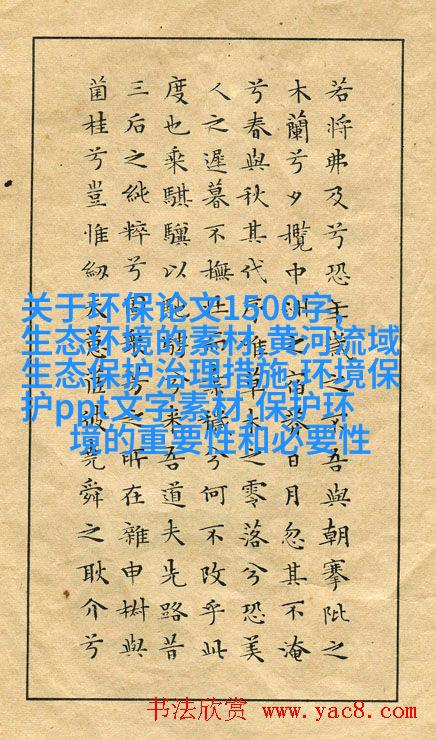 若將弗及兮恐年歲之不吾與朝搴阰之
木蘭兮夕攬中洲之宿莽日月忽其不淹
兮春與秋其代序惟草木之零落兮恐美
人之遲暮不撫壯而棄穢兮何不改乎此
度也乘騏驥以馳騁兮來吾道夫先路昔
三后之純粹兮固衆芳之所在雜申椒與
菌桂兮豈惟紉夫蕙茝彼堯舜之耿介兮
关于环保论文1500字,
生态环境的素材,黄河流域
生态保护治理措施,环境保
护ppt文字素材,保护环
境的重要性和必要性
书法欣赏 www.yac8.com